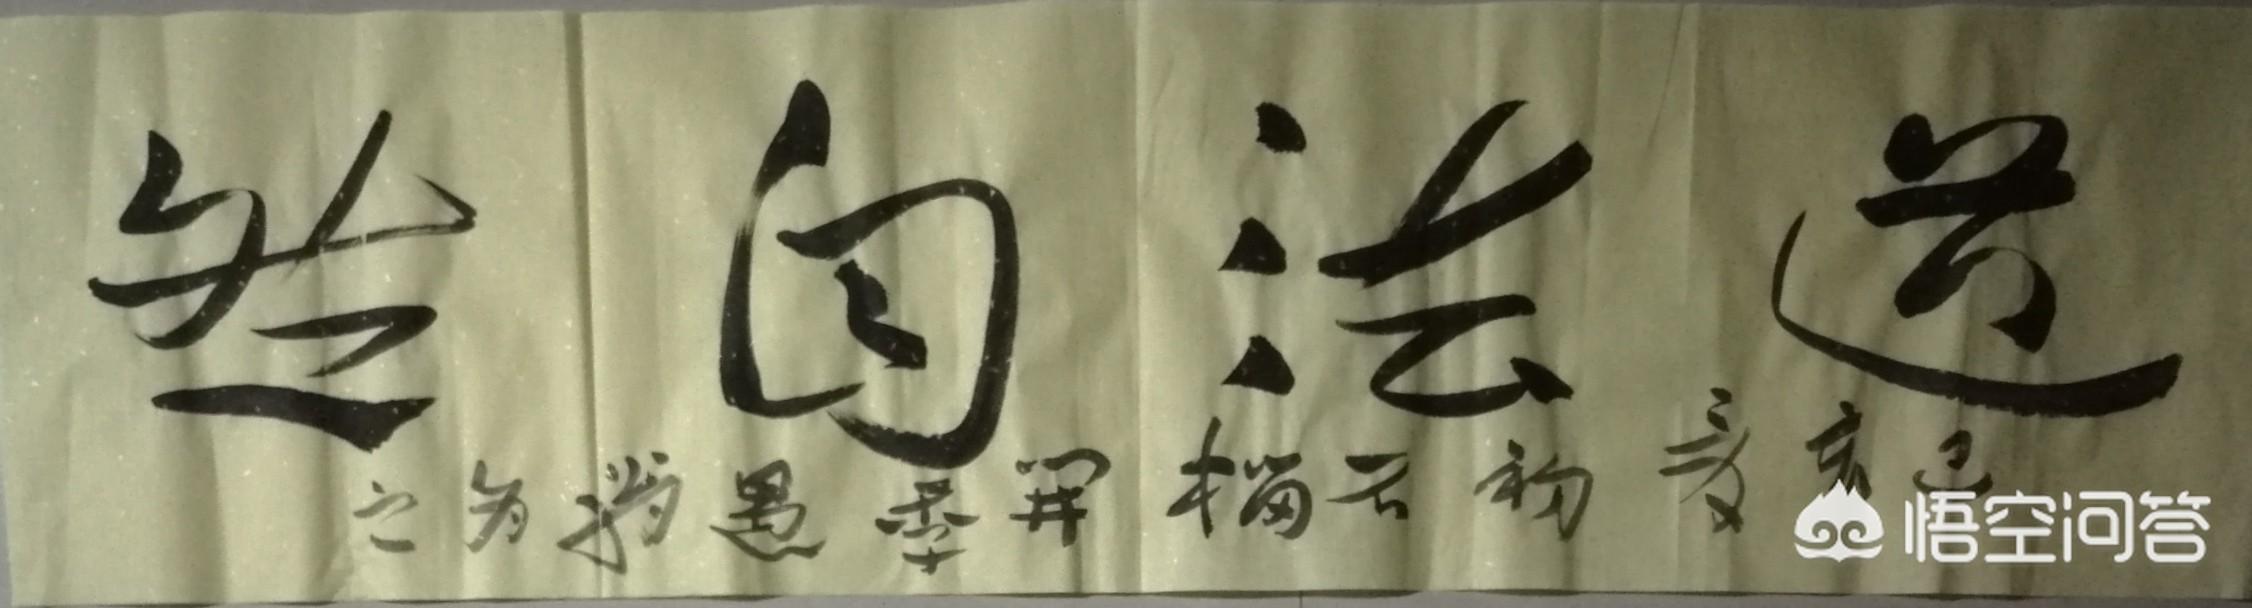 道法自然
己亥夏初石榴开季愚翁为之
悟空问答